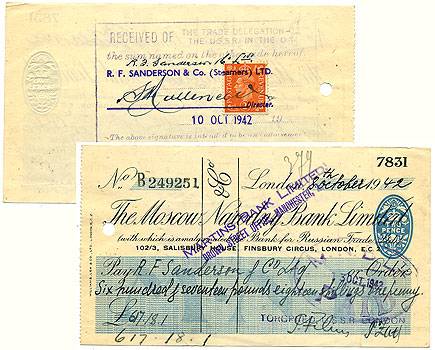 7831
RECEIVED OF THE TRADE DELEGATION
THE U.S.S.R. IN THE U.K.
the sum named on the other side hereof.
R. F. Sanderson & Co. Ltd
R. F. SANDERSON & Co. (Steamers) LTD.
Director.
10 OCT 1942
The above signature is intended to be an endorsement
379
7831
No. B 249251
& Co
London October 1942
The Moscow Narodny Bank Limited
(with which is amalgamated the Bank for Russian Trade
102/3, SALISBURY HOUSE, FINSBURY CIRCUS, LONDON, E.C.
MARTINS BANK LIMITED
MANCHESTER
PENCE
Pay R F Sanderson & Co Ltd or Order
Six hundred & seventeen pounds eighteen shillings one penny
OCT 1942
£617.18.1
LONDON
617.18.1